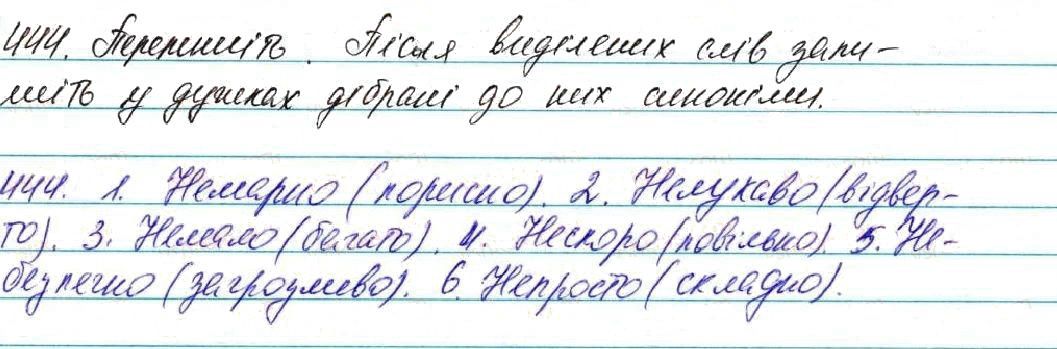 444. Перепишіть. Після виділених слів запи-
шіть у дужках дібрані до них синоніми.
444. 1. Немарно (корисно). 2. Нелукаво (відвер-
то). 3. Немало (багато). 4. Нескоро (повільно). 5. Не-
безпечно (загрозливо). 6. Непросто (складно).